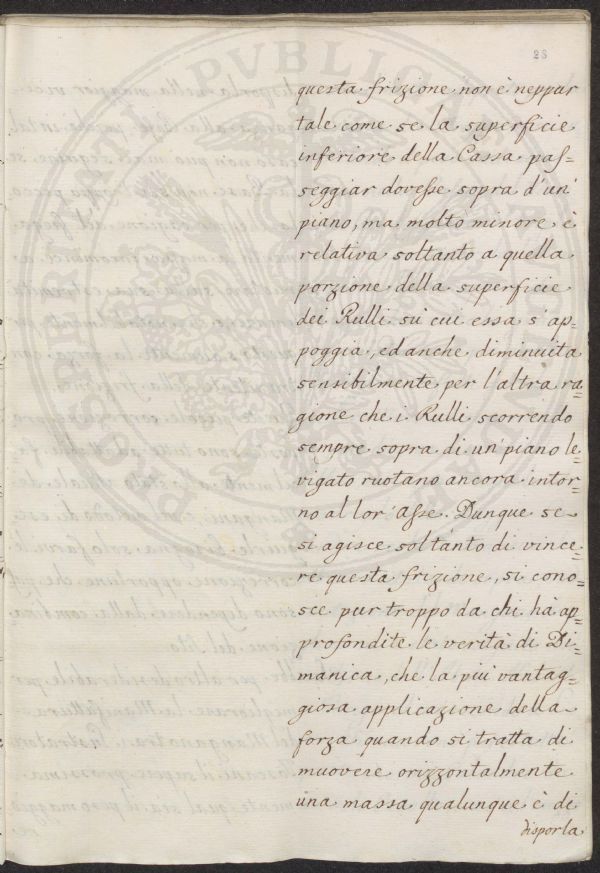 28
questa frizione non è neppur
tale come se la superficie
inferiore della Cassa pas=
seggiar dovesse sopra d'un'
piano, ma molto minore è
relativa soltanto a quella
porzione della superficie
dei Rulli su' cui essa s'ap=
poggia, ed anche diminuita
sensibilmente per l'altra ra=
gione che i Rulli scorrendo
sempre sopra di un'piano le=
vigato ruotano ancora intor=
no al lor' Asse. Dunque se
si agisce soltanto di vince=
re questa frizione, si cono=
sce pur troppo da chi hà ap=
profondite le verità di Di=
manica, che la più vantag=
giosa applicazione della
forza quando si tratta di
muovere orizzontalmente
una massa qualunque è di
disporla